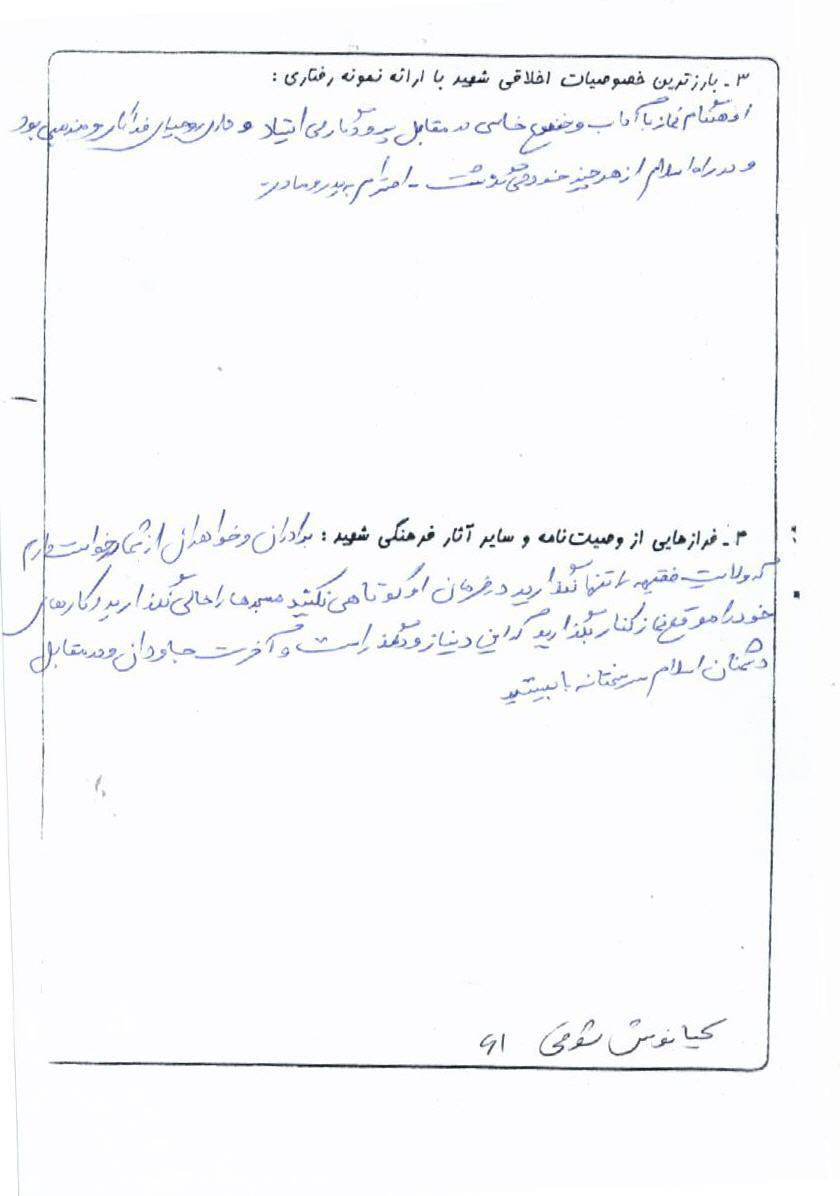 ۳ـ بارزترین خصوصیات اخلاقی شهید با ارائه نمونه رفتاری :
او هنگام نماز با آداب و خضوع خاصی در مقابل پروردگار می ایستاد و دارای روحیه‌ای فداکار و مذهبی بود
و در راه اسلام از هر چیز خود می گذشت - احترام به پدر و مادر
۴ـ فرازهایی از وصیت‌نامه و سایر آثار فرهنگی شهید : برادران و خواهران از شما درخواست دارم
که ولایت فقیهه را تنها نگذارید در فرمان او کوتاهی نکنید مسجدها را خالی نگذارید و کارهای
خود را موقع نماز کنار بگذارید که این دنیا زودگذر است و آخرت جاودان و در مقابل
دشمنان اسلام سرسختانه بایستید